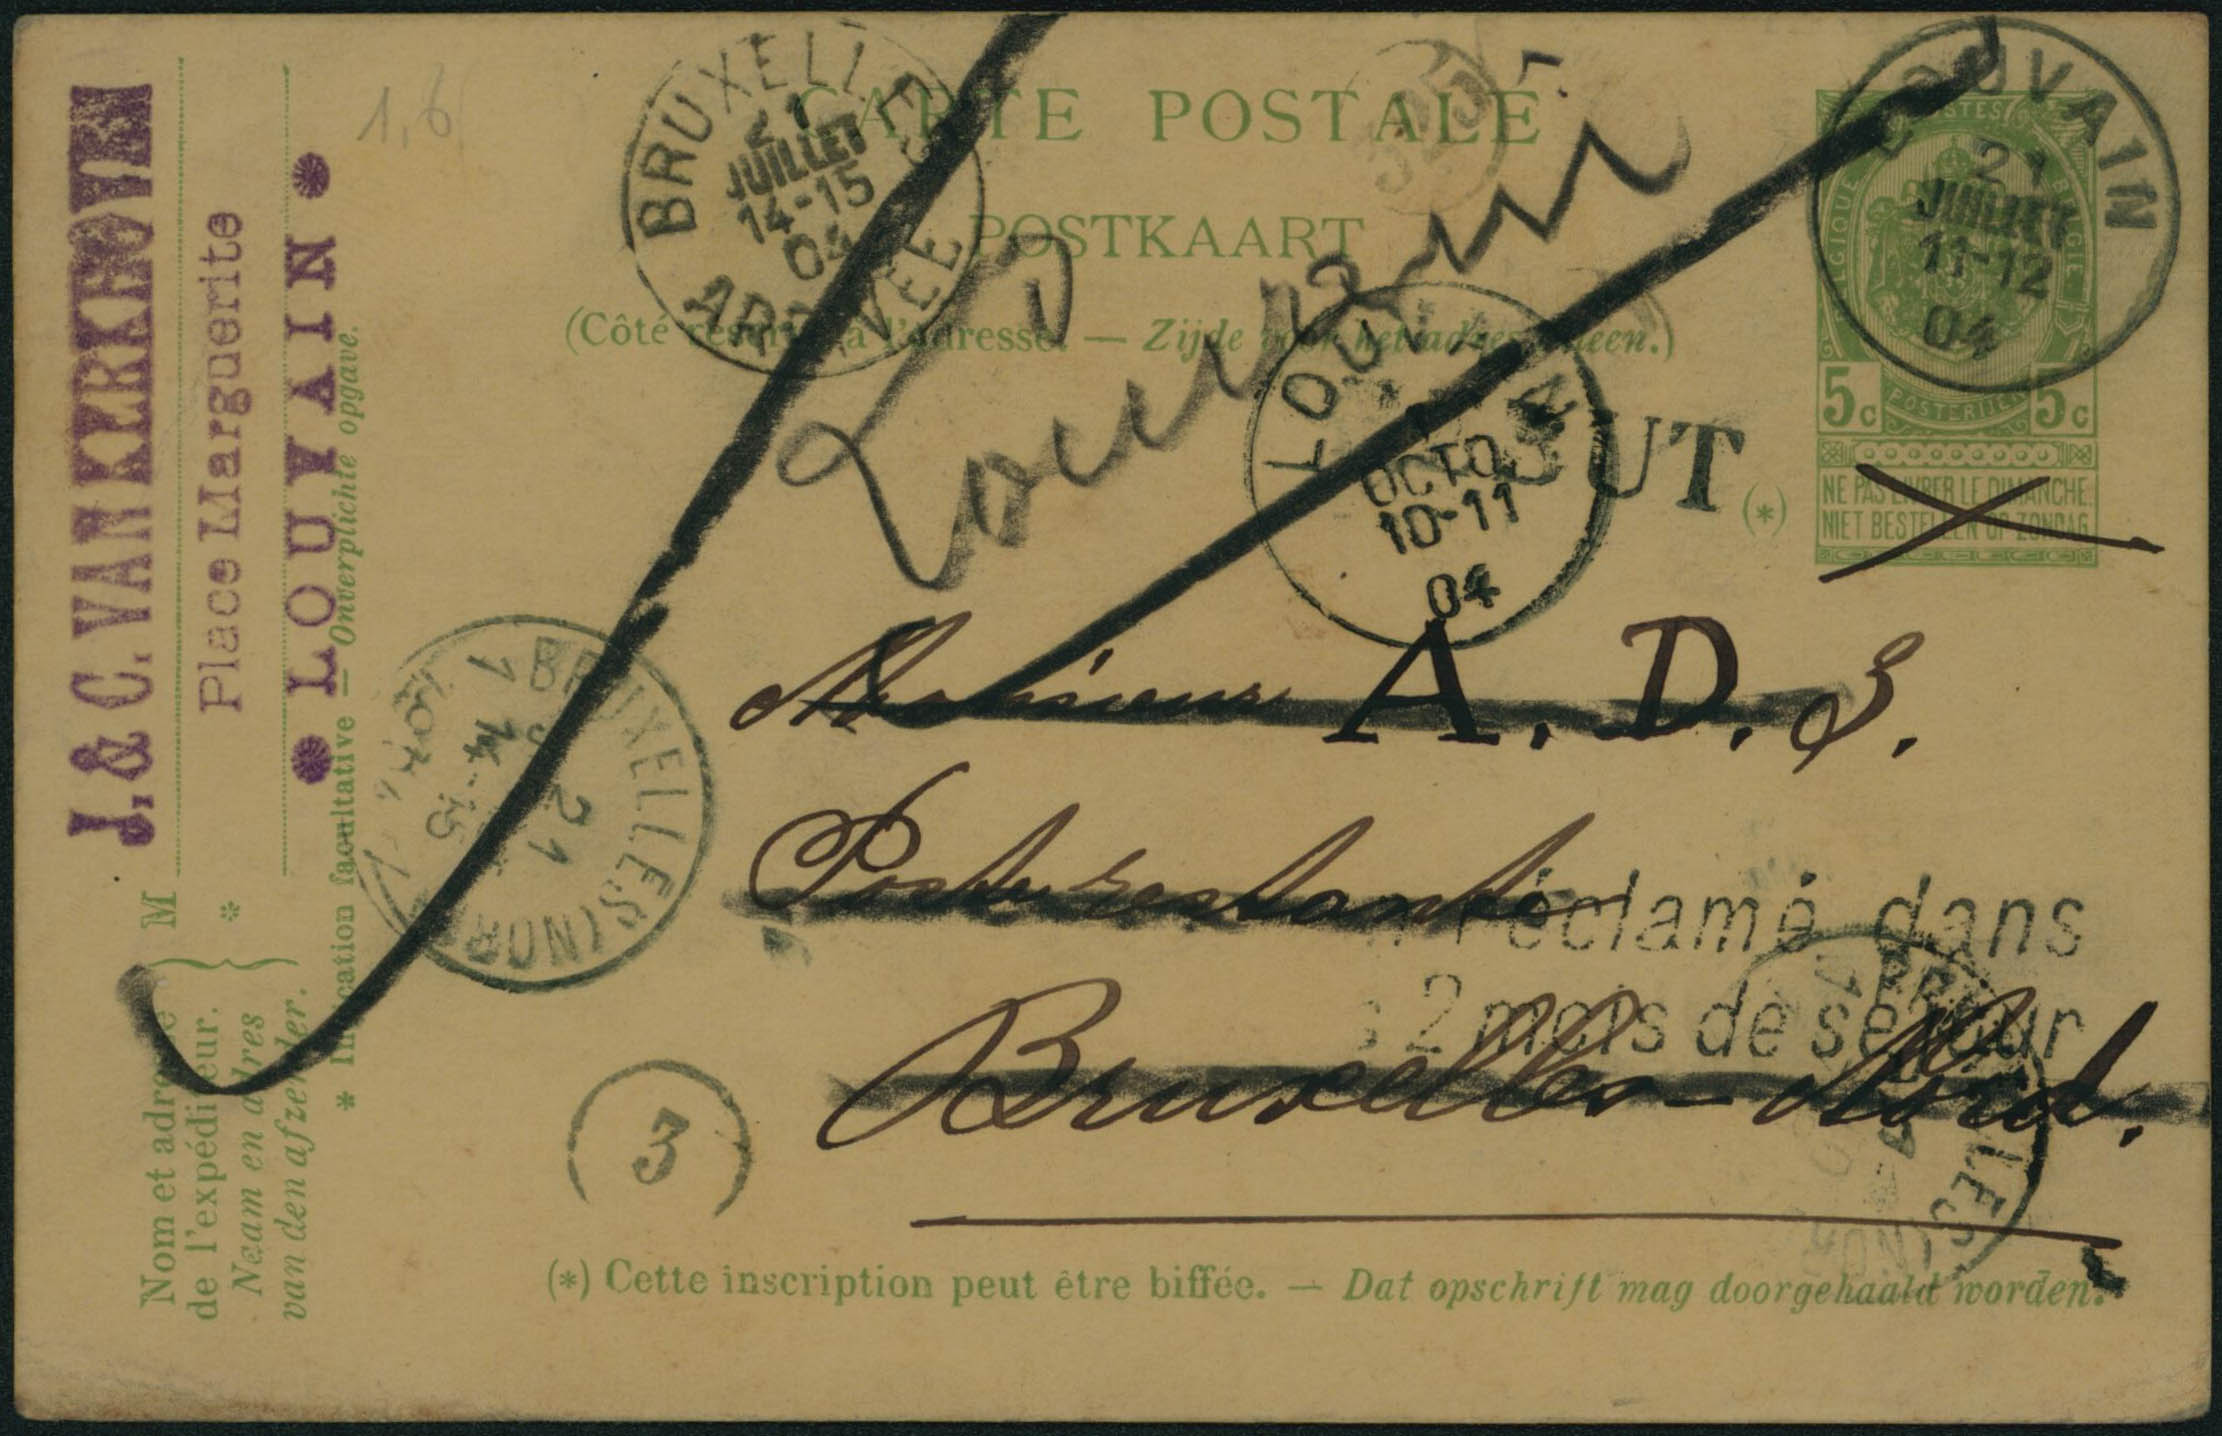 J. & C. VAN KERKHOVE
Place Marguerite
LOUVAIN
M
*
Nom et adresse
de l'expéditeur.
Naam en adres
van den afzender.
* Indication facultative — Onverplichte opgave.
1,6
BRUXELLES
21
JUILLET
14-15
04
ARRIVÉE
CARTE POSTALE
POSTKAART
(Côté réservé à l'adresse. — Zijde voor het adres alleen.)
325
Louvain
LOUVAIN
21
JUILLET
11-12
04
POSTES
BELGIQUE
BELGIË
POSTERIJEN
5c 5c
NE PAS LIVRER LE DIMANCHE.
NIET BESTELLEN OP ZONDAG.
(*)
LOUVAIN
OCTO
10-11
04
UT
BRUXELLES (NORD
21
14-15
1904
Monsieur A. D. S.
Poste restante
Bruxelles-Nord.
réclamé dans
2 mois de séjour
BRUXELLES
3
(*) Cette inscription peut être biffée. — Dat opschrift mag doorgehaald worden.